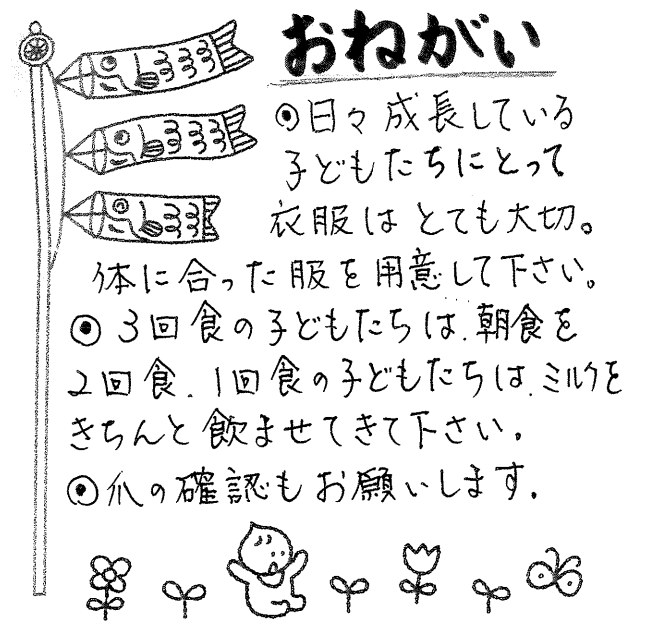 おねがい
◉日々成長している
子どもたちにとって
衣服はとても大切。
体に合った服を用意して下さい。
◉3回食の子どもたちは、朝食を
2回食、1回食の子どもたちは、ミルクを
きちんと飲ませてきて下さい。
◉爪の確認もお願いします。